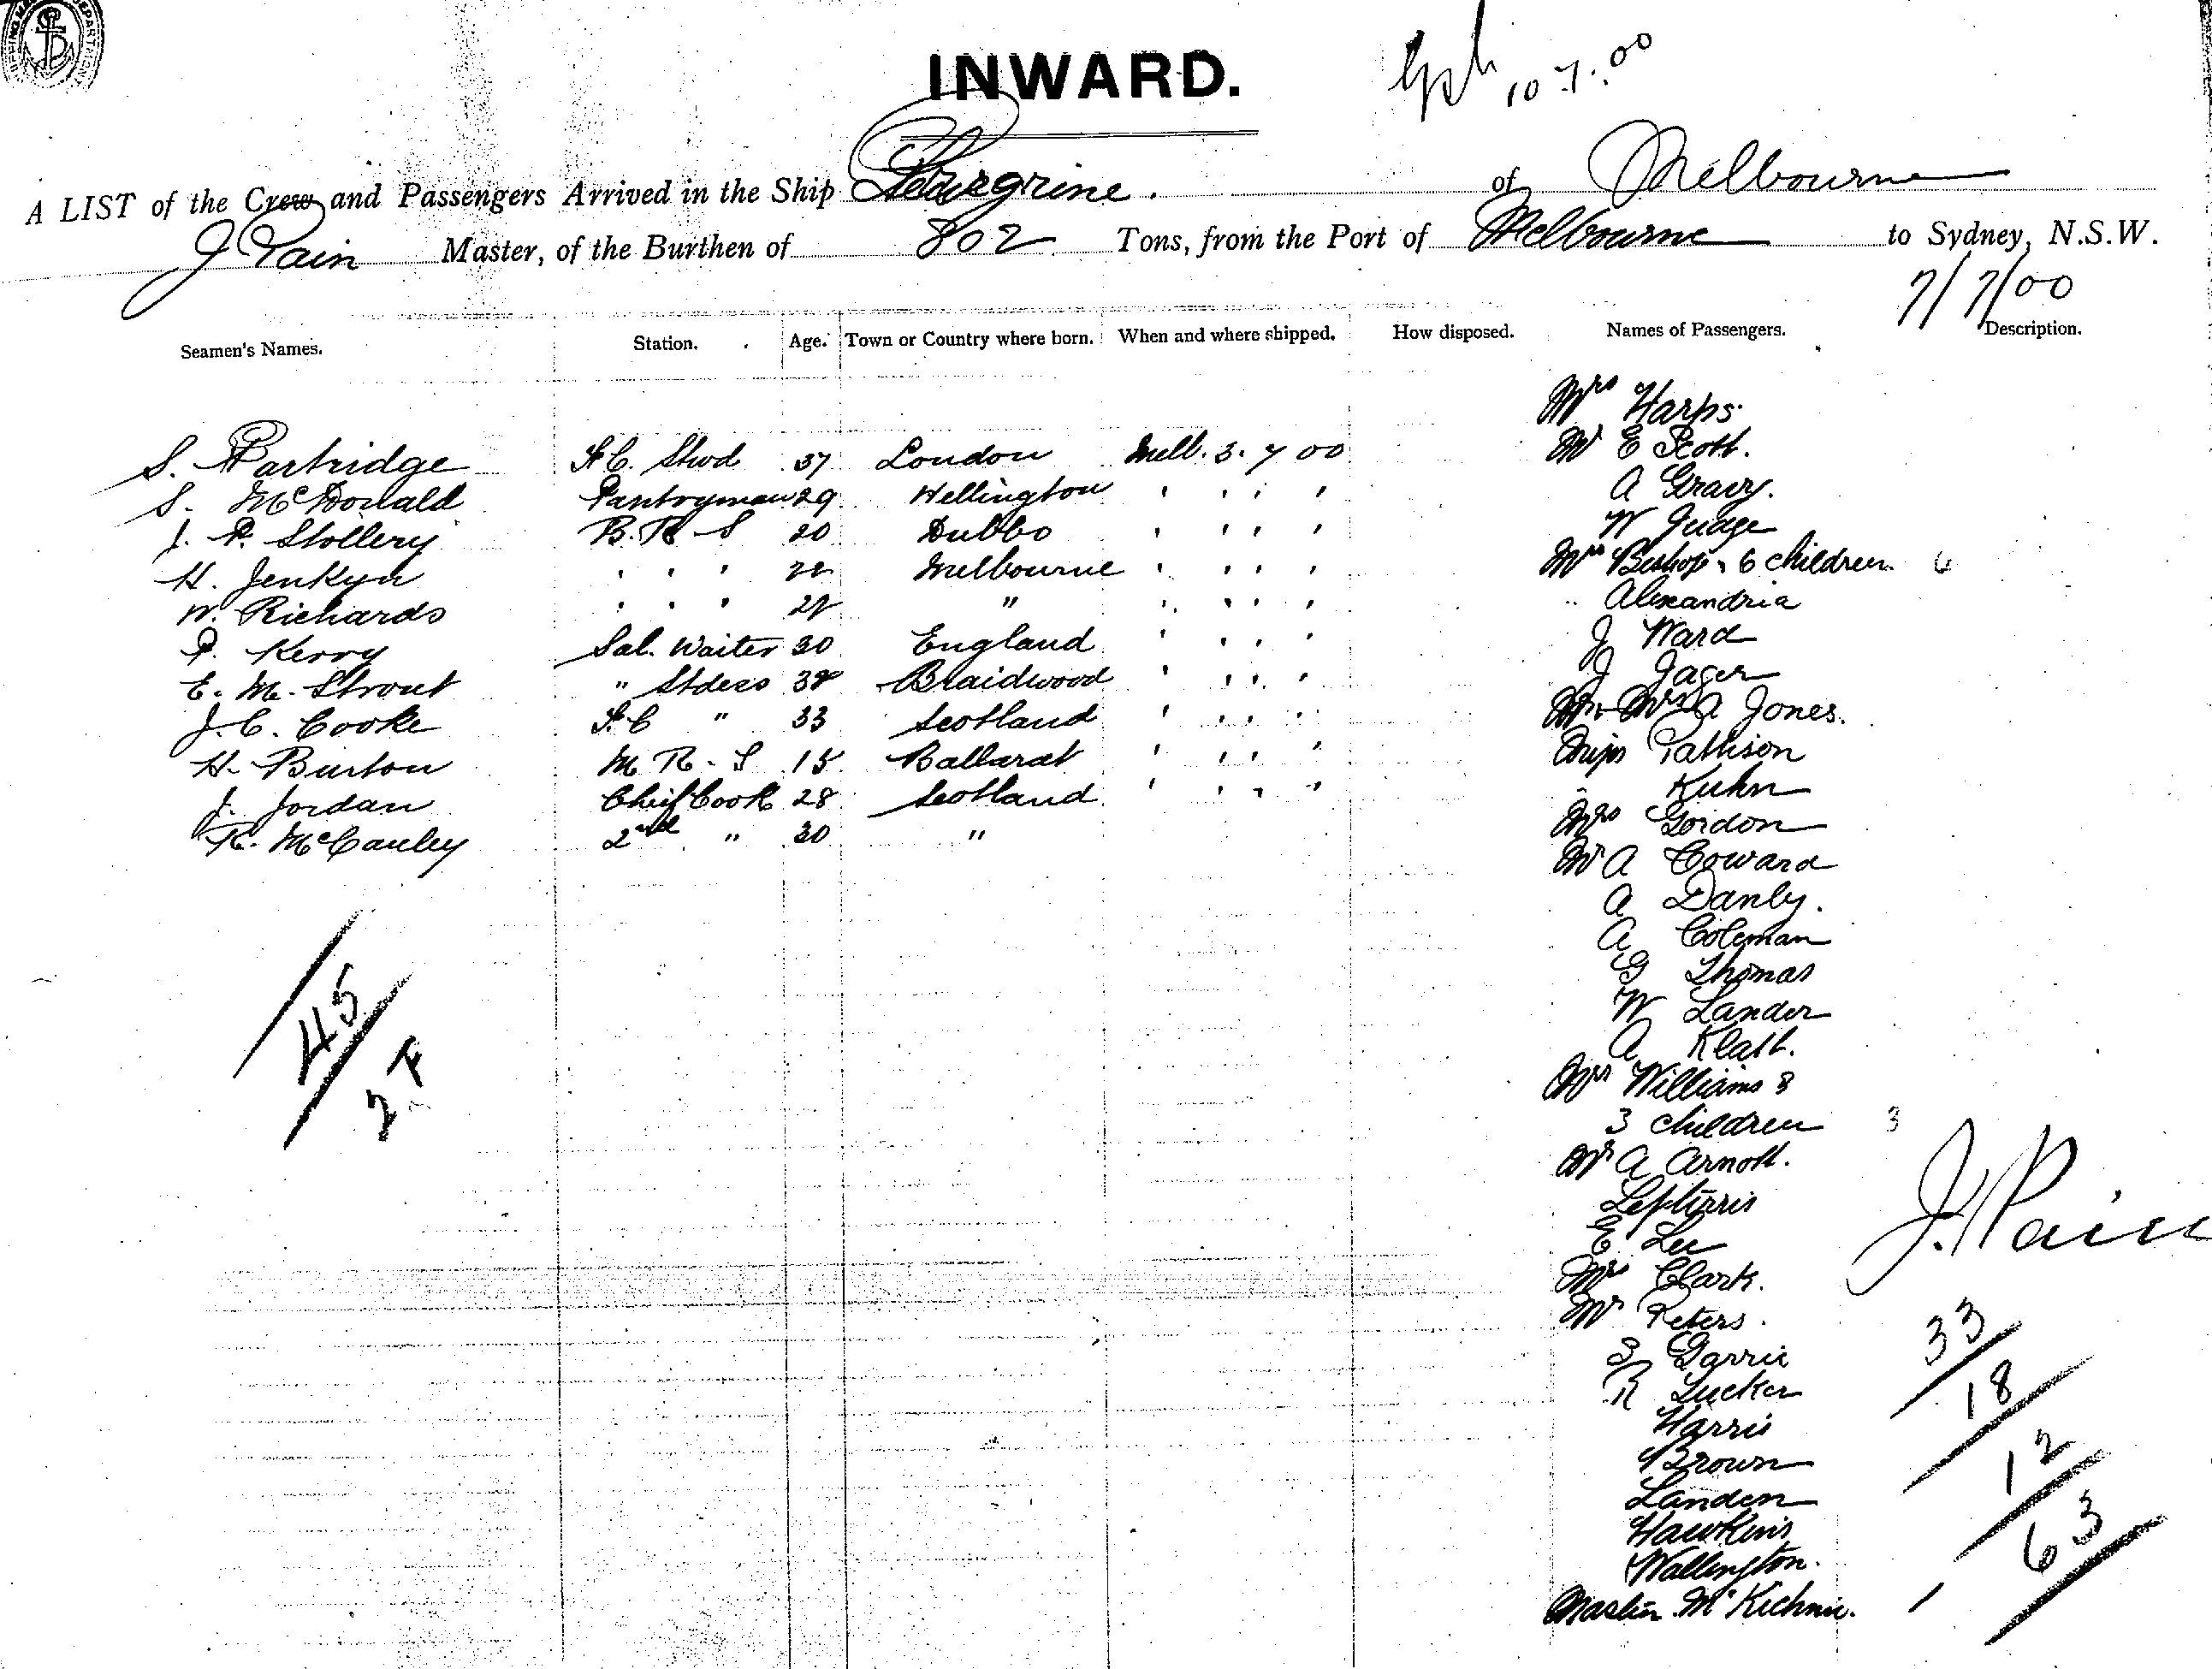 INWARD.
10.7.00
A LIST of the Crew and Passengers Arrived in the Ship Peregrine. of Melbourne
J Pain Master, of the Burthen of 802 Tons, from the Port of Melbourne to Sydney, N.S.W.
7/7/00
Seamen's Names. Station. Age. Town or Country where born. When and where shipped. How disposed. Names of Passengers. Description.
S. Partridge Stwd 37 London Melb. 3. 7 00
S. McDonald Pantryman 29 Wellington ' ' ' '
J. P. Stollery B. R S 20 Dubbo ' ' ' '
H. Jenkyn ' ' ' Melbourne ' ' ' '
W. Richards ' ' ' " ' ' ' '
P. Kerry Sal. Waiter 30 England ' ' ' '
E. M. Strout " Stdess Braidwood ' ' ' '
J. C. Cooke " 33 Scotland ' ' ' '
H. Burton M R. S 15 Ballarat ' ' ' '
J. Jordan Chief Cook 28 Scotland ' ' ' '
R. McCauley 2nd " 30 "
45
2 F
Mrs Harps
Mr E Scott.
A Gravy.
W Judge
Mrs Bishop & 6 children 6
Alexandria
J Ward
J Jager
Mr & Mrs A Jones.
Miss Pattison
Kuhn
Mrs Gordon
Mr A Coward
A Danby.
A Coleman
G Thomas
W Lander
A Klatt.
Mrs Williams &
3 children 3
Mr A Arnott.
E Lee
Mrs Clark.
Mr Peters.
S Garrie
R Tucker
Harris
Brown
Landen
Hawkins
Wallington.
Master McKichnie.
J. Pain
33
18
12
63